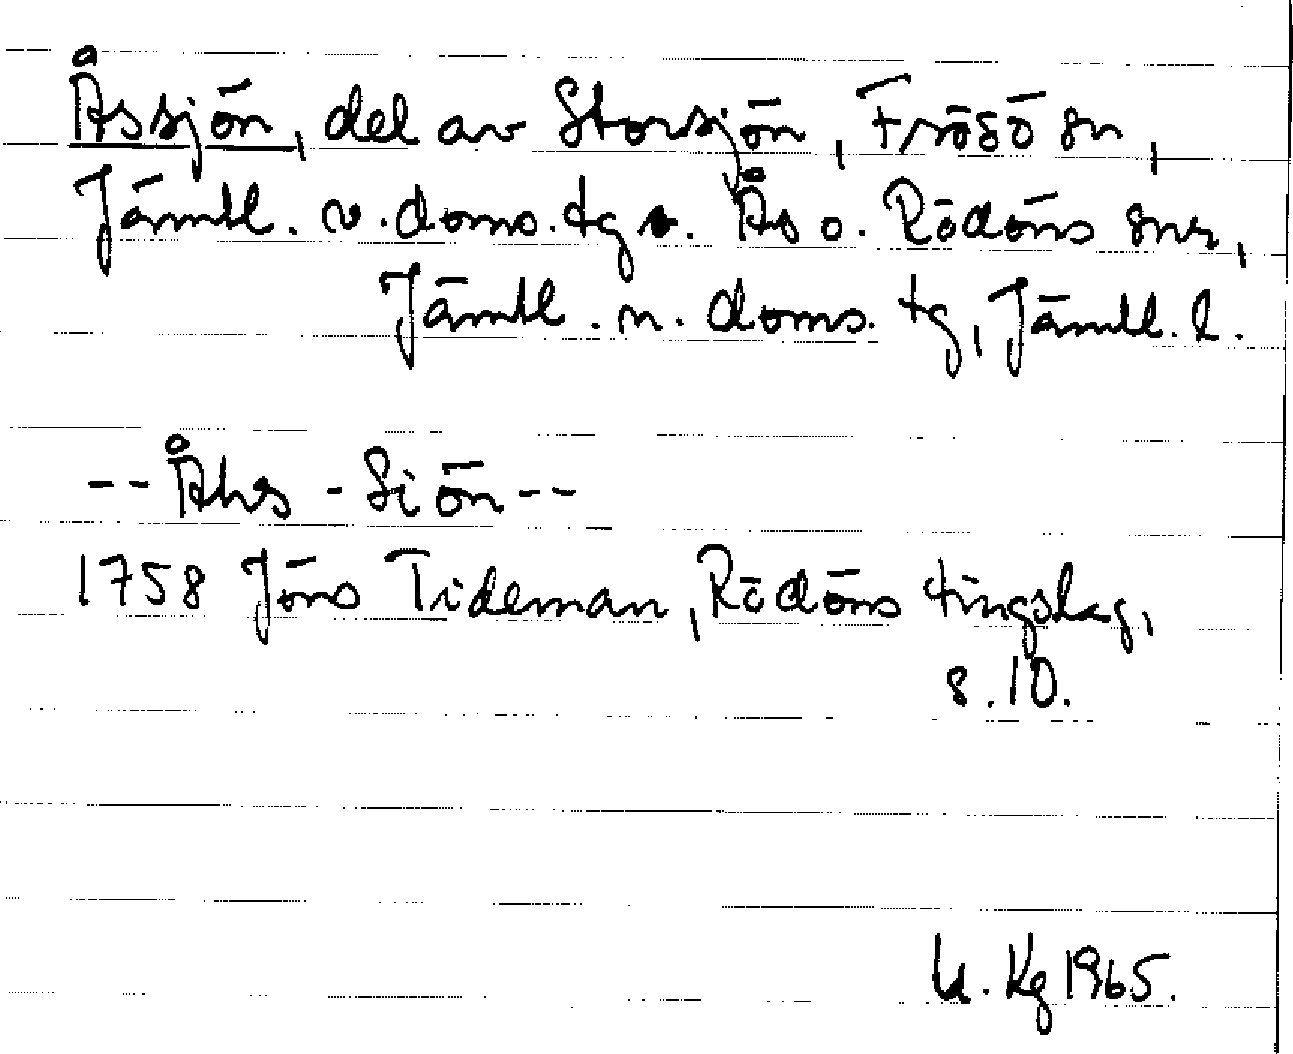 Åssjön, del av Storsjön, Frösö sn,
Jämtl. v. doms. tg o. Ås o. Rödöns snr,
Jämtl. n. doms. tg, Jämtl. l.
-- Åhs - Siön --
1758 Jöns Tideman, Rödöns tingslag,
s. 10.
U. Kg 1965.